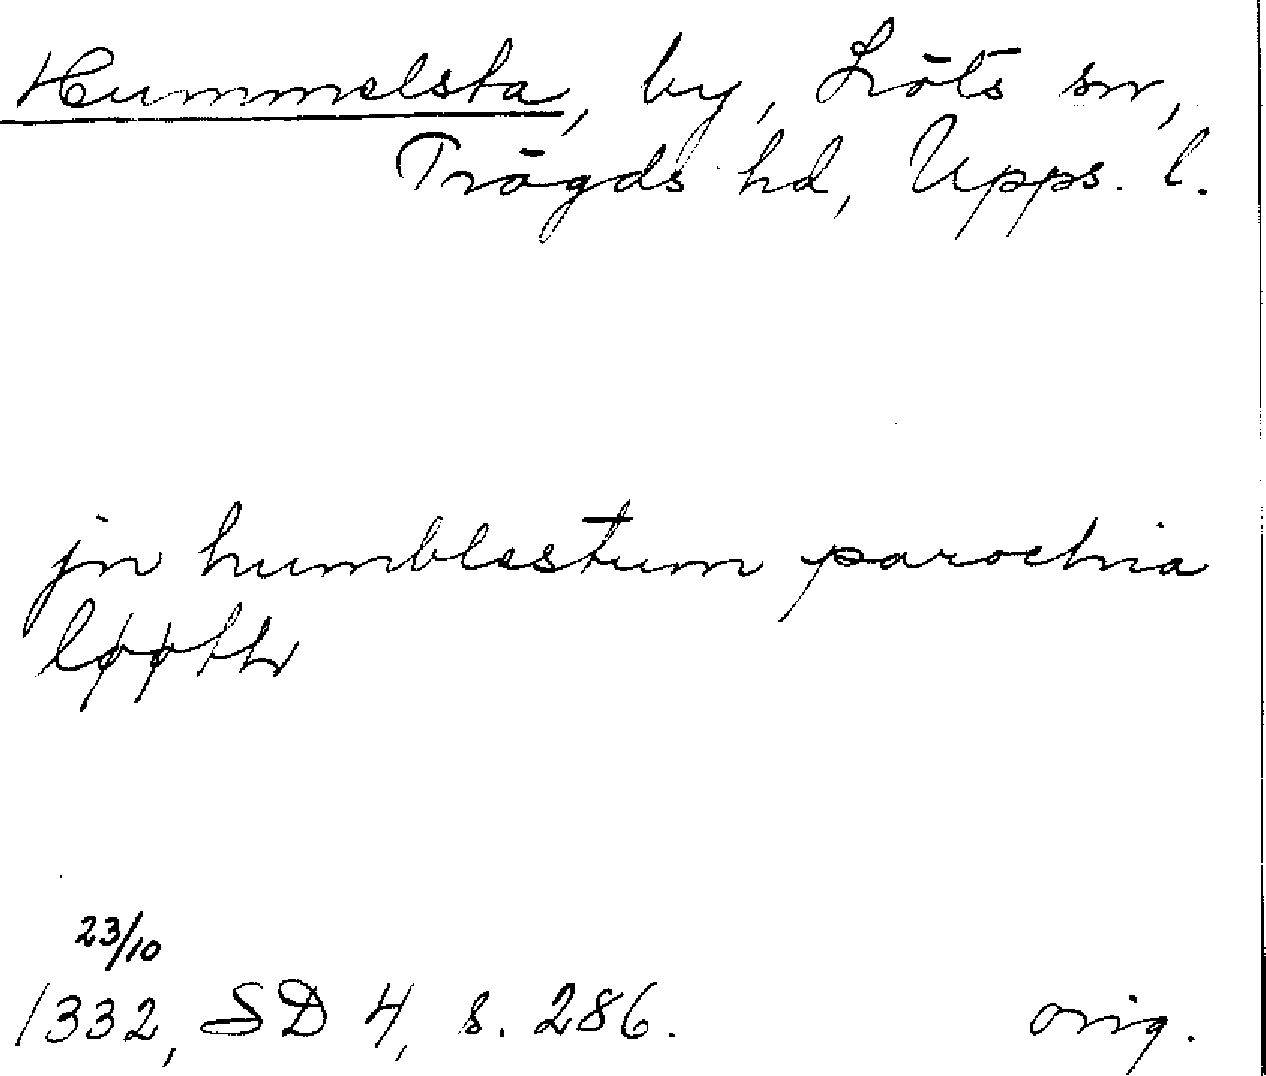 Hummelsta, by, Löts sn,
Trögds hd, Upps. l.
jn humblestum parochia
løøth
23/10
1332, SD 4, s. 286. orig.